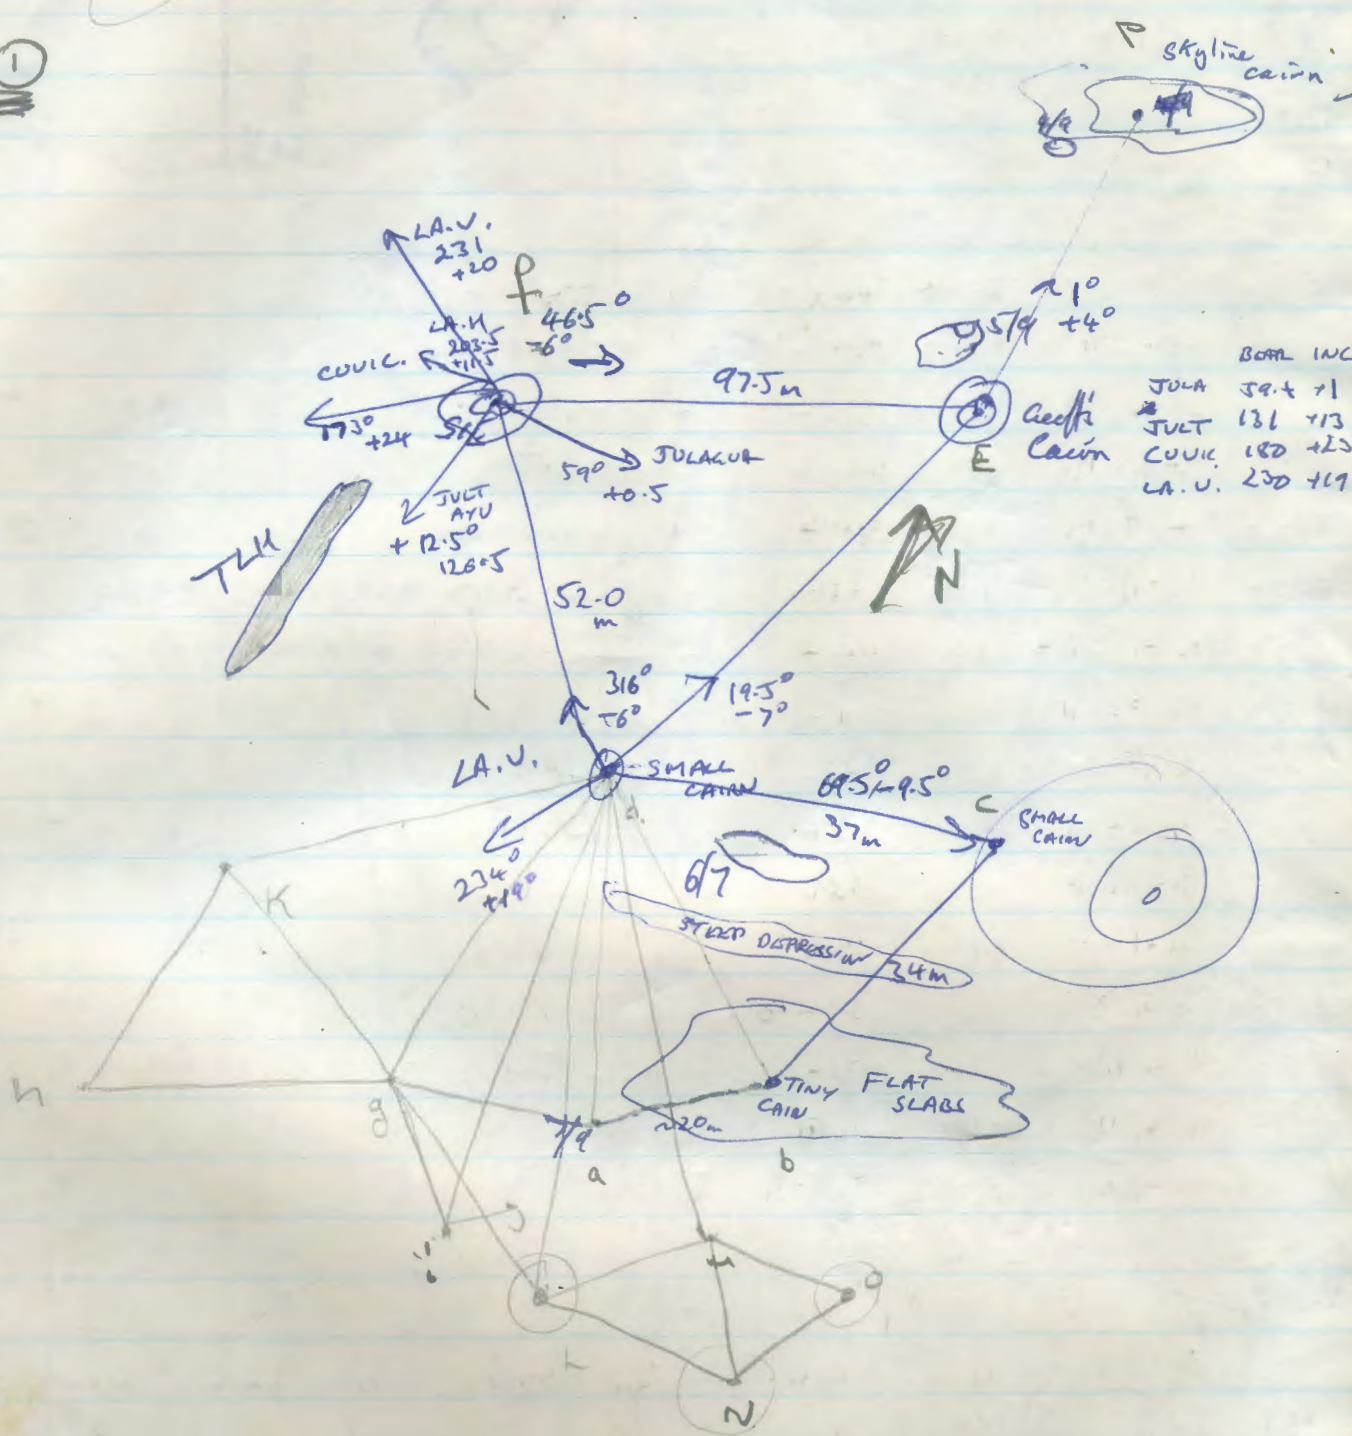 1
P
skyline
cairn
8/9
LA.V.
231
+20
P
46.5°
-6°
LA.H
203.5
+11.5
COVIC.
173°
+24
97.5m
5/9
1°
+4°
E
Cairn
BEAR INC
JULA 59.+ +1
JULT 131 +13
CUVIC. 180 +23
LA.V. 230 +19
59°
+0.5
JULAGUA
JULT
AYU
+12.5°
126.5
TLH
N
52.0
m
316°
-6°
19.5°
-7°
LA.V.
234°
+19°
SMALL
CAIRN
d.
69.5°/-9.5°
37m
C
SMALL
CAIRN
6/7
STEEP DEPRESSION
34m
K
h
g
TINY
CAIN
FLAT
SLABS
7/9
~20m
a
b
i
J
L
O
Z